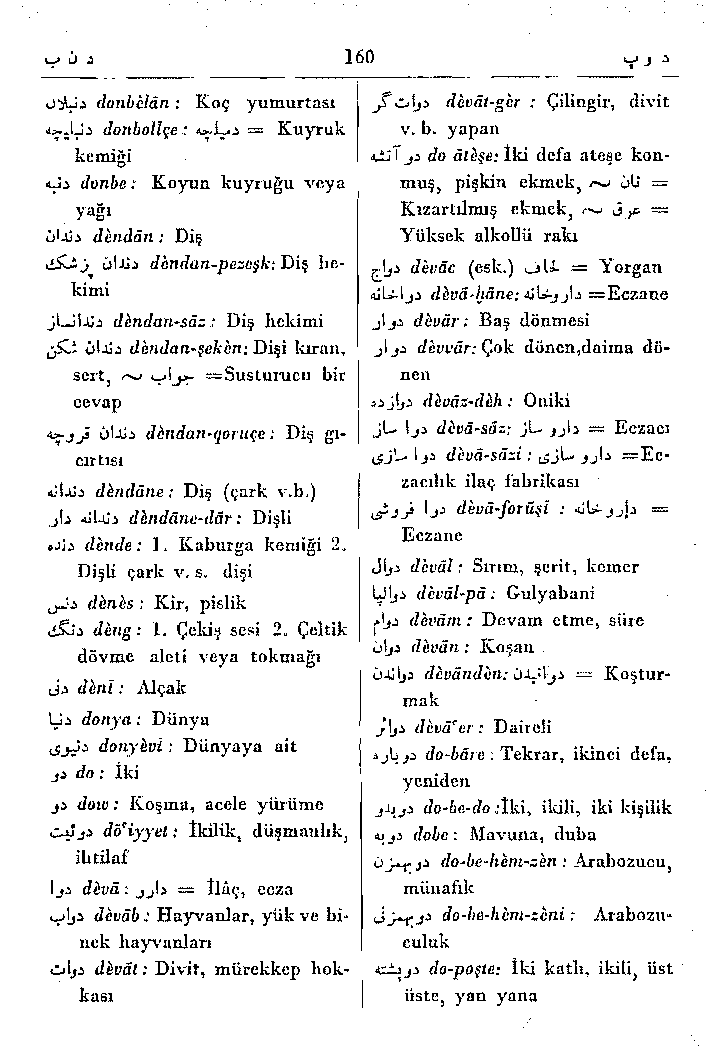 د ن ب 160 د و پ
دنبلان donbèlân : Koç yumurtası
دنبلیچه donbolîçe : دنبلیچه = Kuyruk
kemiği
دنبه donbe : Koyun kuyruğu veya
yağı
دندان dèndân : Diş
دندان پزشك dèndan-pezeşk: Diş he-
kimi
دندانساز dèndan-sāz : Diş hekimi
دندان شكن dèndan-şekèn: Dişi kıran,
sert, جواب ~ =Susturucu bir
cevap
دندان قروچه dèndan-qoruçe : Diş gı-
cırtısı
دندانه dèndāne : Diş (çark v.b.)
دندانه دار dèndāne-dār : Dişli
دنده dènde : 1. Kaburga kemiği 2.
Dişli çark v. s. dişi
دنس dènès : Kir, pislik
دنگ dèng : 1. Çekiş sesi 2. Çeltik
dövme aleti veya tokmağı
دنی dènî : Alçak
دنیا donya : Dünya
دنیوی donyèvî : Dünyaya ait
دو do : İki
دو dow : Koşma, acele yürüme
دوئیت dö'iyyet : İkilik, düşmanlık,
ihtilaf
دوا dèvā : دارو = İlâç, ecza
دواب dèvāb : Hayvanlar, yük ve bi-
nek hayvanları
دوات dèvāt : Divit, mürekkep hok-
kası
دوات گر dèvāt-gèr : Çilingir, divit
v. b. yapan
دو آتشه do ātèşe: İki defa ateşe kon-
muş, pişkin ekmek, نان ~ =
Kızartılmış ekmek, عرق ~ =
Yüksek alkollü rakı
دواج dèvāc (esk.) لحاف = Yorgan
دواخانه dèvā-hāne: داروخانه =Eczane
دوار dèvār : Baş dönmesi
دوار dèvvār: Çok dönen,daima dö-
nen
دوازده dèvāz-dèh : Oniki
دوا ساز dèvā-sāz: دارو ساز = Eczacı
دوا سازی dèvā-sāzi : دارو سازی =Ec-
zacılık ilaç fabrikası
دوا فروشی dèvā-forūşî : داروخانه =
Eczane
دوال dèvāl : Sırım, şerit, kemer
دوالپا dèvāl-pā : Gulyabani
دوام dèvām : Devam etme, süre
دوان dèvān : Koşan
دواندن dèvāndèn: دوانیدن = Koştur-
mak
دوائر dèvā'er : Daireli
دوباره do-bāre : Tekrar, ikinci defa,
yeniden
دوبدو do-be-do :İki, ikili, iki kişilik
دوبه dobe : Mavuna, duba
دوبهمزن do-be-hèm-zèn : Arabozucu,
münafık
دوبهمزنی do-be-hèm-zèni : Arabozu-
culuk
دوپشته do-poşte: İki katlı, ikili, üst
üste, yan yana